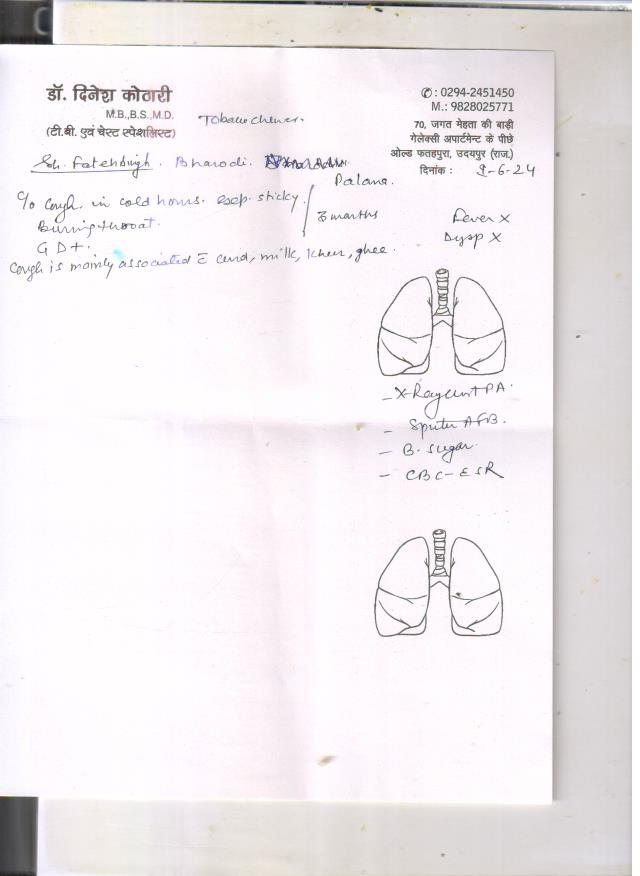 डॉ. दिनेश कोठारी
M.B.,B.S.,M.D.
(टी.बी. एवं चेस्ट स्पेशलिस्ट)
Tobacco chewer.
✆ : 0294-2451450
M.: 9828025771
70, जगत मेहता की बाड़ी
गेलेक्सी अपार्टमेन्ट के पीछे
ओल्ड फतहपुरा, उदयपुर (राज.)
दिनांक : 9-6-24
Sh. Fatehsingh. Bharodi.
Palana.
c/o Cough. in cold hours. esep. sticky.
Burning throat.
3 months
G D +.
Fever X
Dysp X
Cough is mainly associated c̄ curd, milk, kheer, ghee.
- X-Ray PA.
- Sputu AFB.
- B. sugar.
- CBC - ESR